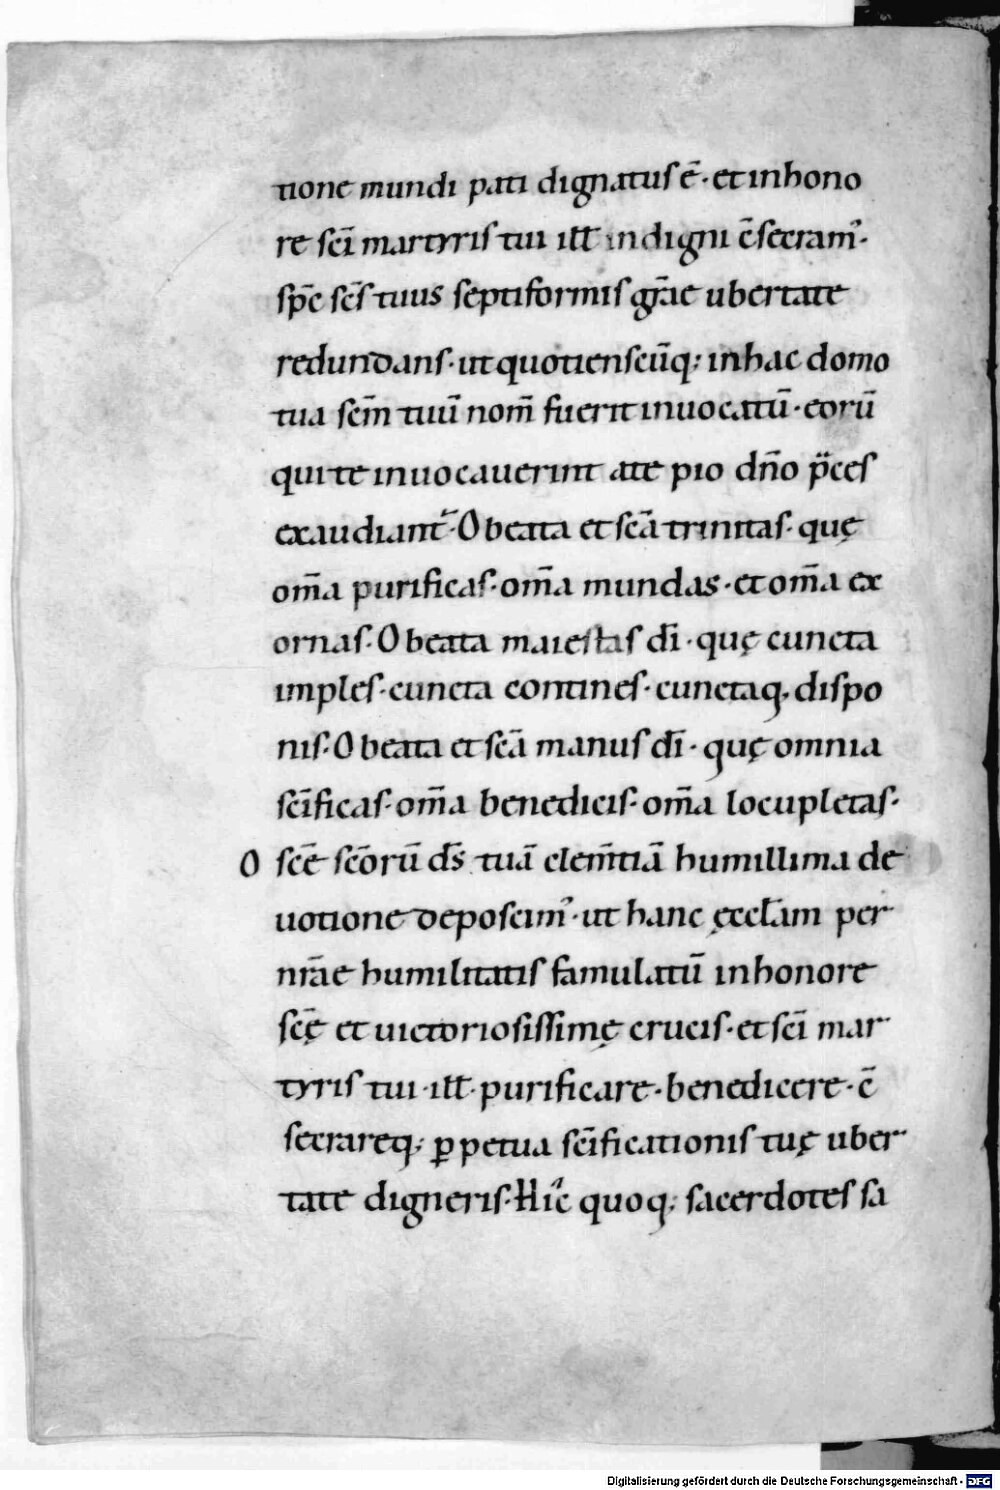 tione mundi pati dignatus ē· et inhono
re sc̄i martyris tui ill̄ indigni c̄secram᾿·
sp̄c sc̄s tuus septiformis gr̄ae ubertate
redundans· ut quotienscūq; inhac domo
tua sc̄m tuū nom̄ fuerit inuocatū· eorū
qui te inuocauerint ate pio dn̄o p̄ces
exaudiant᷑· O beata et sc̄a trinitas· quę
om̄a purificas· om̄a mundas· et om̄a ex
ornas· O beata maiestas dī· quę cuncta
imples· cuncta contines· cunctaq; dispo
nis· O beata et sc̄a manus dī· quę omnia
sc̄ificas· om̄a benedicis· om̄a locupletas·
O sc̄e sc̄orū ds̄ tuā clem̄tiā humillima de
uotione deposcim᾿· ut hanc ęccl̄am per
nr̄ae humilitatis famulatū inhonore
sc̄ę et uictoriosissimę crucis· et sc̄i mar
tyris tui· ill̄· purificare· benedicere· c̄
secrareq; ꝑpetua sc̄ificationis tuę uber
tate digneris· Hic̄ quoq; sacerdotes sa
Digitalisierung gefördert durch die Deutsche Forschungsgemeinschaft - DFG